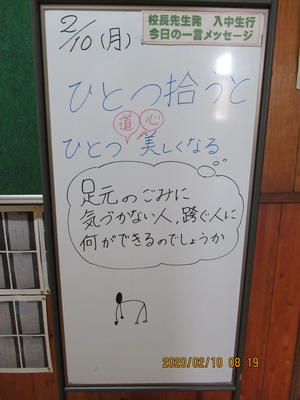 2/10(月)
校長先生発 入中生行
今日の一言メッセージ
ひとつ拾うと
道 心
ひとつ 美しくなる
足元のごみに
気づかない人,跨ぐ人に
何ができるのでしょうか
2020/02/10 08:19